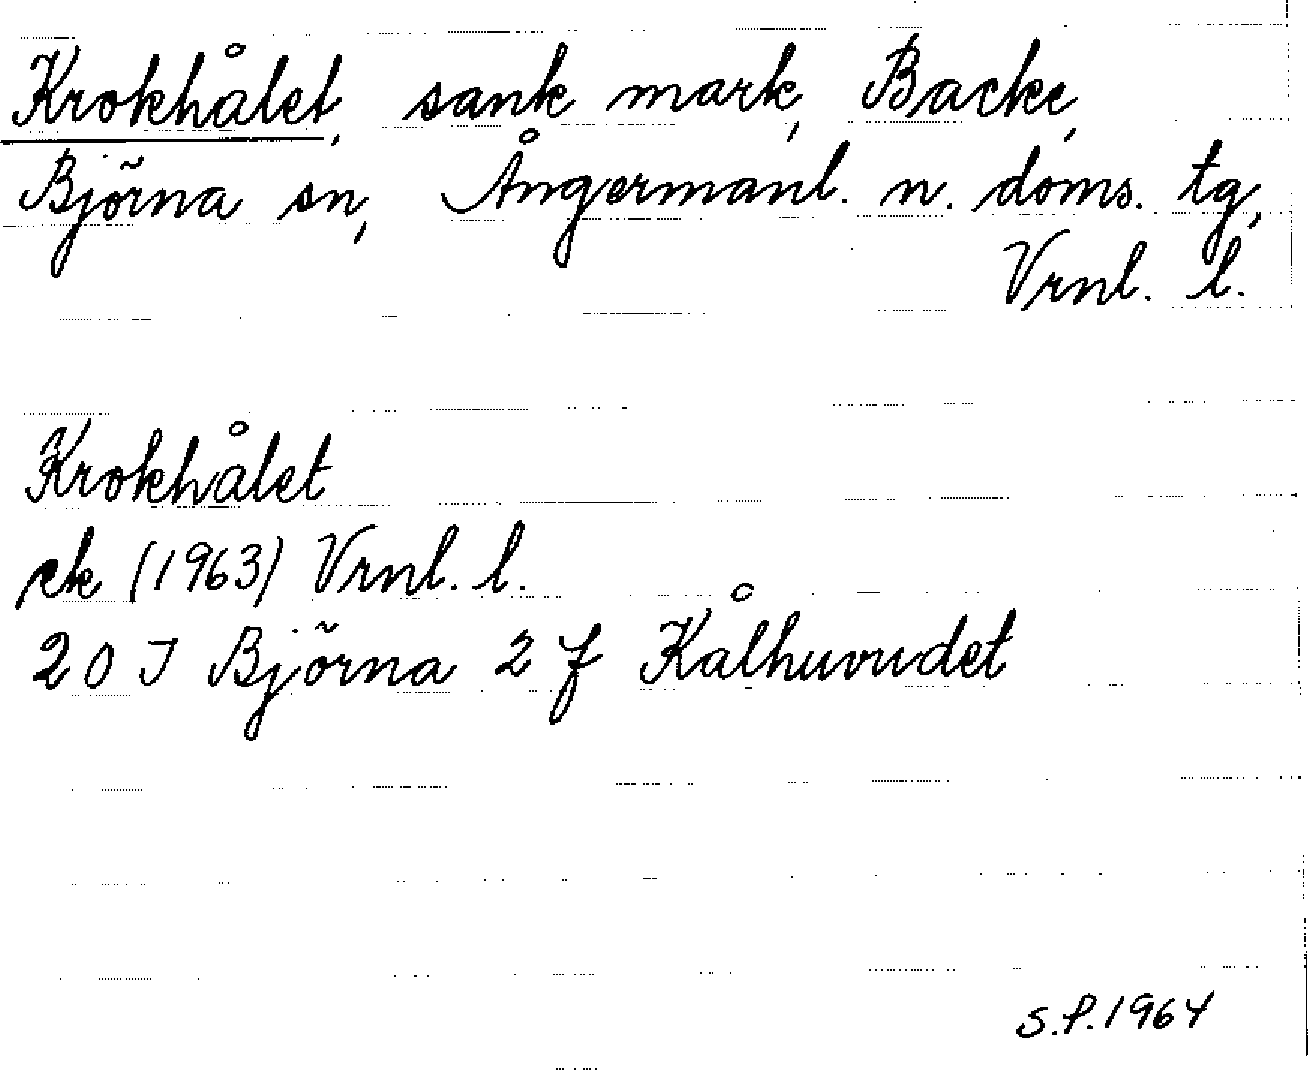 Krokhålet, sank mark, Backe,
Björna sn, Ångermanl. n. doms. tg,
Vrnl. l.
Krokhålet
ek (1963) Vrnl. l.
20 J Björna 2 f Kålhuvudet
S.P. 1964